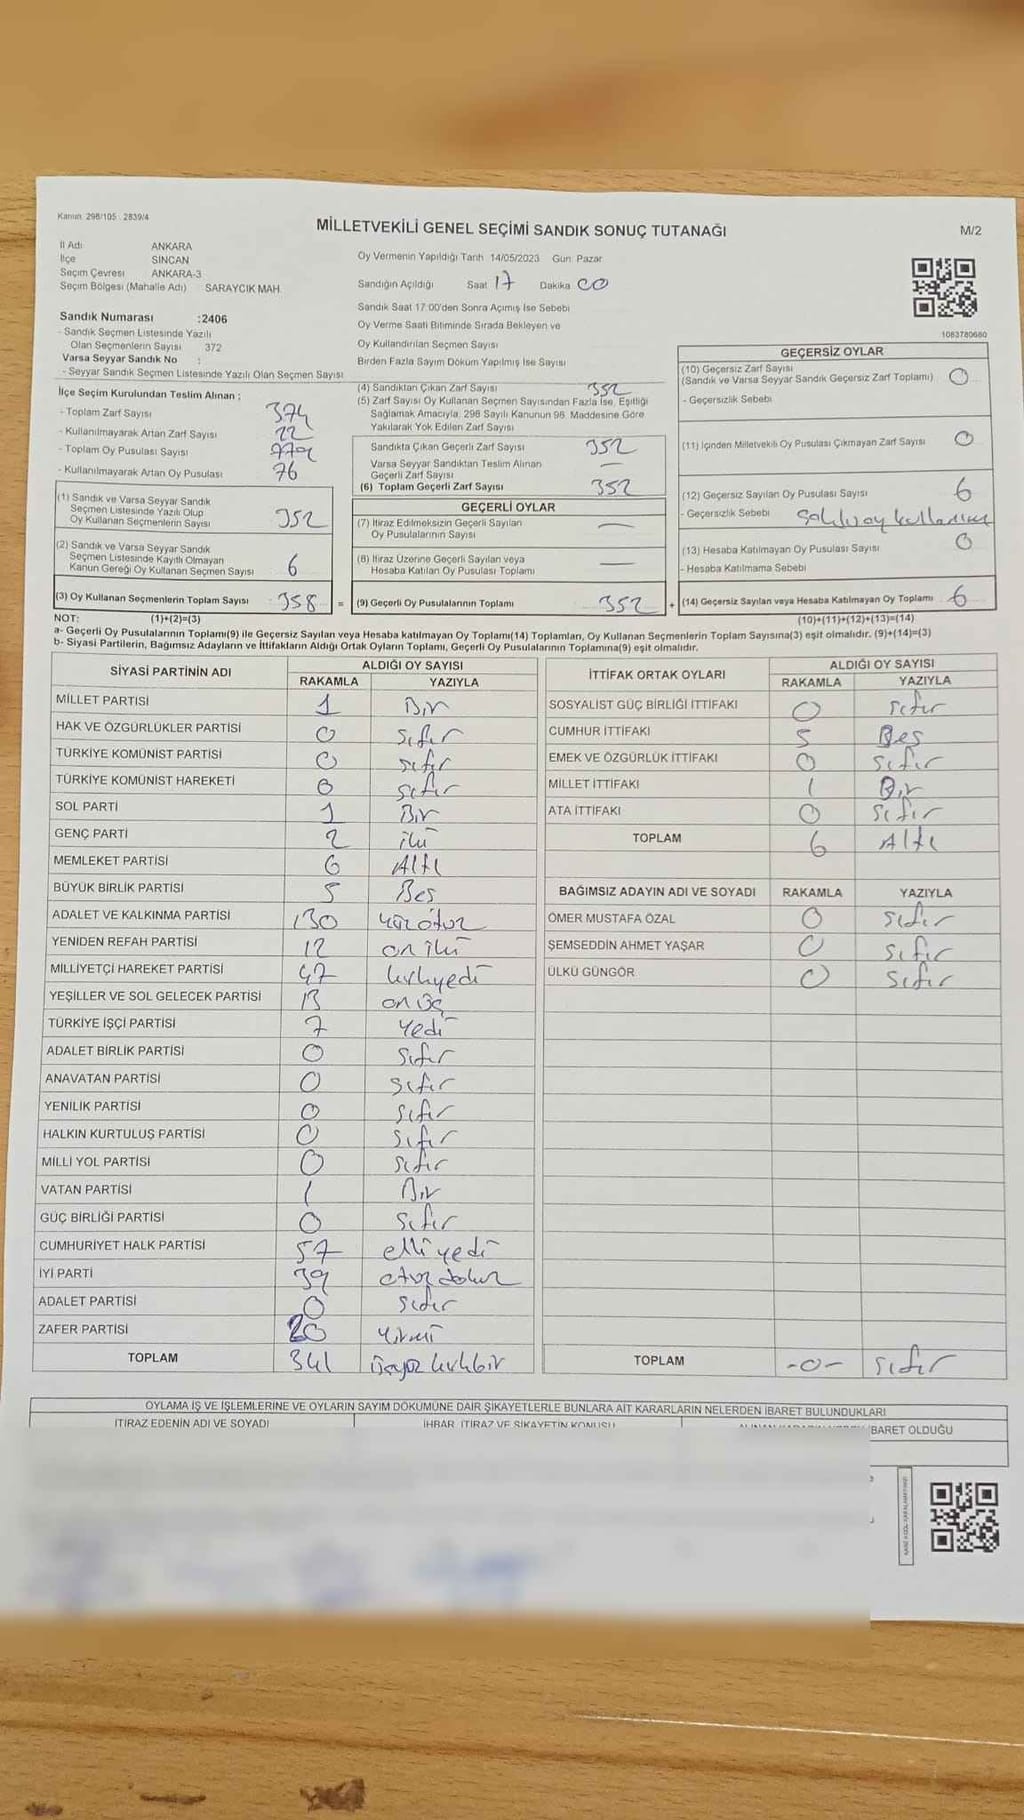 Kanun: 298/105 : 2839/4
MİLLETVEKİLİ GENEL SEÇİMİ SANDIK SONUÇ TUTANAĞI
M/2
İl Adı ANKARA
İlçe SİNCAN
Seçim Çevresi ANKARA-3
Seçim Bölgesi (Mahalle Adı) SARAYCIK MAH.
Oy Vermenin Yapıldığı Tarih 14/05/2023 Gün: Pazar
Sandığın Açıldığı Saat 17 Dakika 00
Sandık Saat 17:00'den Sonra Açımış İse Sebebi
Oy Verme Saati Bitiminde Sırada Bekleyen ve
Oy Kullandırılan Seçmen Sayısı
Birden Fazla Sayım Döküm Yapılmış İse Sayısı
1083780660
Sandık Numarası :2406
- Sandık Seçmen Listesinde Yazılı
Olan Seçmenlerin Sayısı 372
Varsa Seyyar Sandık No :
- Seyyar Sandık Seçmen Listesinde Yazılı Olan Seçmen Sayısı
İlçe Seçim Kurulundan Teslim Alınan :
- Toplam Zarf Sayısı 374
- Kullanılmayarak Artan Zarf Sayısı 22
- Toplam Oy Pusulası Sayısı
- Kullanılmayarak Artan Oy Pusulası 76
(1) Sandık ve Varsa Seyyar Sandık
Seçmen Listesinde Yazılı Olup
Oy Kullanan Seçmenlerin Sayısı 352
(2) Sandık ve Varsa Seyyar Sandık
Seçmen Listesinde Kayıtlı Olmayan
Kanun Gereği Oy Kullanan Seçmen Sayısı 6
(3) Oy Kullanan Seçmenlerin Toplam Sayısı 358 =
(4) Sandıktan Çıkan Zarf Sayısı 352
(5) Zarf Sayısı Oy Kullanan Seçmen Sayısından Fazla İse, Eşitliği
Sağlamak Amacıyla, 298 Sayılı Kanunun 98. Maddesine Göre
Yakılarak Yok Edilen Zarf Sayısı
Sandıkta Çıkan Geçerli Zarf Sayısı 352
Varsa Seyyar Sandıktan Teslim Alınan
Geçerli Zarf Sayısı —
(6) Toplam Geçerli Zarf Sayısı 352
GEÇERLİ OYLAR
(7) İtiraz Edilmeksizin Geçerli Sayılan
Oy Pusulalarının Sayısı —
(8) İtiraz Üzerine Geçerli Sayılan veya
Hesaba Katılan Oy Pusulası Toplamı —
(9) Geçerli Oy Pusulalarının Toplamı 352 +
GEÇERSİZ OYLAR
(10) Geçersiz Zarf Sayısı
(Sandık ve Varsa Seyyar Sandık Geçersiz Zarf Toplamı) 0
- Geçersizlik Sebebi
(11) İçinden Milletvekili Oy Pusulası Çıkmayan Zarf Sayısı 0
(12) Geçersiz Sayılan Oy Pusulası Sayısı 6
- Geçersizlik Sebebi
(13) Hesaba Katılmayan Oy Pusulası Sayısı 0
- Hesaba Katılmama Sebebi
(14) Geçersiz Sayılan veya Hesaba Katılmayan Oy Toplamı 6
NOT: (1)+(2)=(3) (10)+(11)+(12)+(13)=(14)
a- Geçerli Oy Pusulalarının Toplamı(9) ile Geçersiz Sayılan veya Hesaba katılmayan Oy Toplamı(14) Toplamları, Oy Kullanan Seçmenlerin Toplam Sayısına(3) eşit olmalıdır. (9)+(14)=(3)
b- Siyasi Partilerin, Bağımsız Adayların ve İttifakların Aldığı Ortak Oyların Toplamı, Geçerli Oy Pusulalarının Toplamına(9) eşit olmalıdır.
SİYASİ PARTİNİN ADI ALDIĞI OY SAYISI
RAKAMLA YAZIYLA
MİLLET PARTİSİ 1 Bir
HAK VE ÖZGÜRLÜKLER PARTİSİ 0 sıfır
TÜRKİYE KOMÜNİST PARTİSİ 0 sıfır
TÜRKİYE KOMÜNİST HAREKETİ 0 sıfır
SOL PARTİ 1 Bir
GENÇ PARTİ 2 iki
MEMLEKET PARTİSİ 6 Altı
BÜYÜK BİRLİK PARTİSİ 5 Beş
ADALET VE KALKINMA PARTİSİ 130 yüz otuz
YENİDEN REFAH PARTİSİ 12 on iki
MİLLİYETÇİ HAREKET PARTİSİ 47 kırkyedi
YEŞİLLER VE SOL GELECEK PARTİSİ 13 on üç
TÜRKİYE İŞÇİ PARTİSİ 7 yedi
ADALET BİRLİK PARTİSİ 0 sıfır
ANAVATAN PARTİSİ 0 sıfır
YENİLİK PARTİSİ 0 sıfır
HALKIN KURTULUŞ PARTİSİ 0 sıfır
MİLLİ YOL PARTİSİ 0 sıfır
VATAN PARTİSİ 1 Bir
GÜÇ BİRLİĞİ PARTİSİ 0 sıfır
CUMHURİYET HALK PARTİSİ 57 elli yedi
İYİ PARTİ 39 otuz dokuz
ADALET PARTİSİ 0 sıfır
ZAFER PARTİSİ 20 yirmi
TOPLAM 341 üçyüz kırkbir
İTTİFAK ORTAK OYLARI ALDIĞI OY SAYISI
RAKAMLA YAZIYLA
SOSYALİST GÜÇ BİRLİĞİ İTTİFAKI 0 sıfır
CUMHUR İTTİFAKI 5 Beş
EMEK VE ÖZGÜRLÜK İTTİFAKI 0 sıfır
MİLLET İTTİFAKI 1 Bir
ATA İTTİFAKI 0 sıfır
TOPLAM 6 Altı
BAĞIMSIZ ADAYIN ADI VE SOYADI RAKAMLA YAZIYLA
ÖMER MUSTAFA ÖZAL 0 sıfır
ŞEMSEDDİN AHMET YAŞAR 0 sıfır
ÜLKÜ GÜNGÖR 0 sıfır
TOPLAM -0- sıfır
OYLAMA İŞ VE İŞLEMLERİNE VE OYLARIN SAYIM DÖKÜMÜNE DAİR ŞİKAYETLERLE BUNLARA AİT KARARLARIN NELERDEN İBARET BULUNDUKLARI
İTİRAZ EDENİN ADI VE SOYADI İHBAR, İTİRAZ VE ŞİKAYETİN KONUSU İBARET OLDUĞU